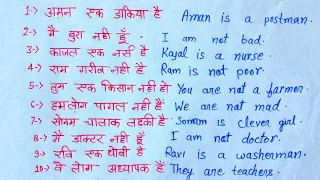 1-> अमन एक डाकिया है Aman is a postman.
2-> मैं बुरा नहीं हूँ. I am not bad.
3-> काजल एक नर्स है Kajal is a nurse.
4-> राम गरीब नहीं है Ram is not poor.
5-> तुम एक किसान नहीं हो You are not a farmer.
6-> हमलोग पागल नहीं हैं We are not mad.
7-> सोनम चालाक लड़की है Sonam is clever girl.
8-> मैं डाक्टर नहीं हूँ I am not doctor.
9-> रवि एक धोबी है Ravi is a washerman.
10-> वे लोग अध्यापक हैं They are teachers.